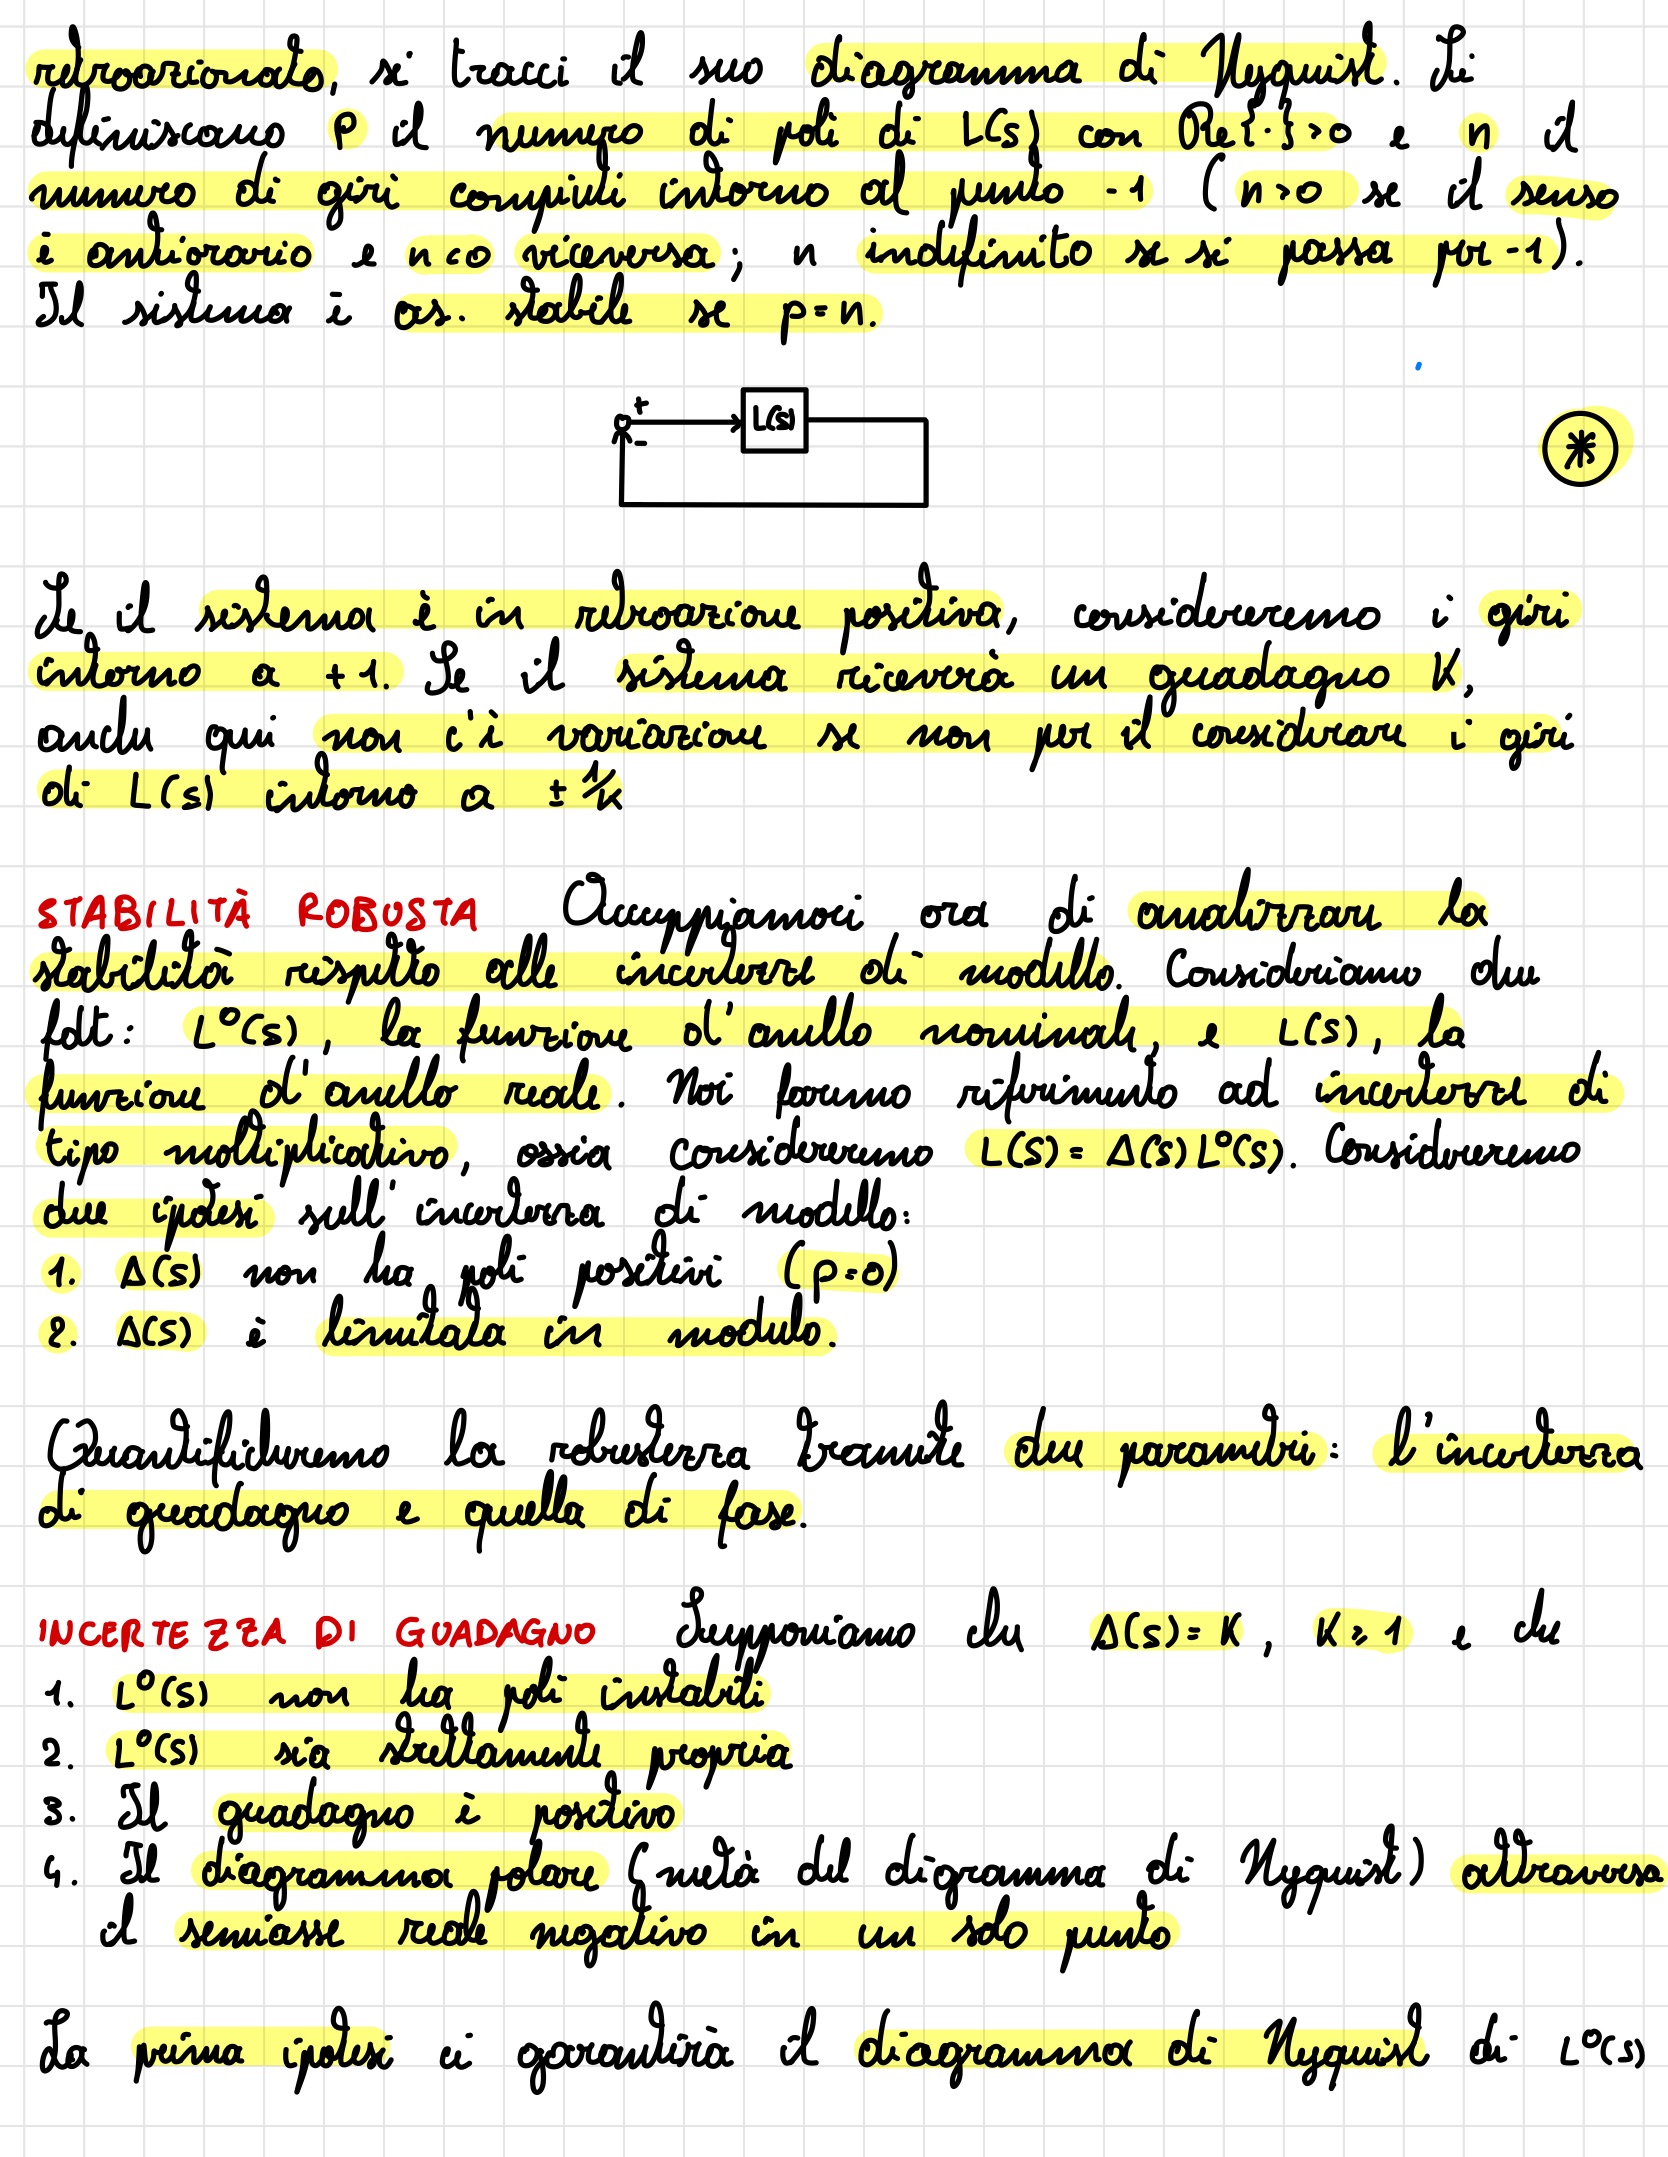 retroazionato, si tracci il suo diagramma di Nyquist. Si
definiscano P il numero di poli di L(s) con Re{·}>0 e n il
numero di giri compiuti intorno al punto -1 (n>0 se il senso
è antiorario e n<0 viceversa; n indefinito se si passa per -1).
Il sistema è as. stabile se p=n.
+
L(s)
-
*
Se il sistema è in retroazione positiva, considereremo i giri
intorno a +1. Se il sistema riceverà un guadagno K,
anche qui non c'è variazione se non per il considerare i giri
di L(s) intorno a ± 1/K
STABILITÀ ROBUSTA Occuppiamoci ora di analizzare la
stabilità rispetto alle incertezze di modello. Consideriamo due
fdt: L°(s), la funzione d'anello nominale, e L(s), la
funzione d'anello reale. Noi faremo riferimento ad incertezze di
tipo moltiplicativo, ossia considereremo L(s)= Δ(s)L°(s). Considereremo
due ipotesi sull'incertezza di modello:
1. Δ(s) non ha poli positivi (p=0)
2. Δ(s) è limitata in modulo.
Quantificheremo la robustezza tramite due parametri: l'incertezza
di guadagno e quella di fase.
INCERTEZZA DI GUADAGNO Supponiamo che Δ(s)= K, K≥1 e che
1. L°(s) non ha poli instabili
2. L°(s) sia strettamente propria
3. Il guadagno è positivo
4. Il diagramma polare (metà del digramma di Nyquist) attraversa
il semiasse reale negativo in un solo punto
La prima ipotesi ci garantirà il diagramma di Nyquist di L°(s)